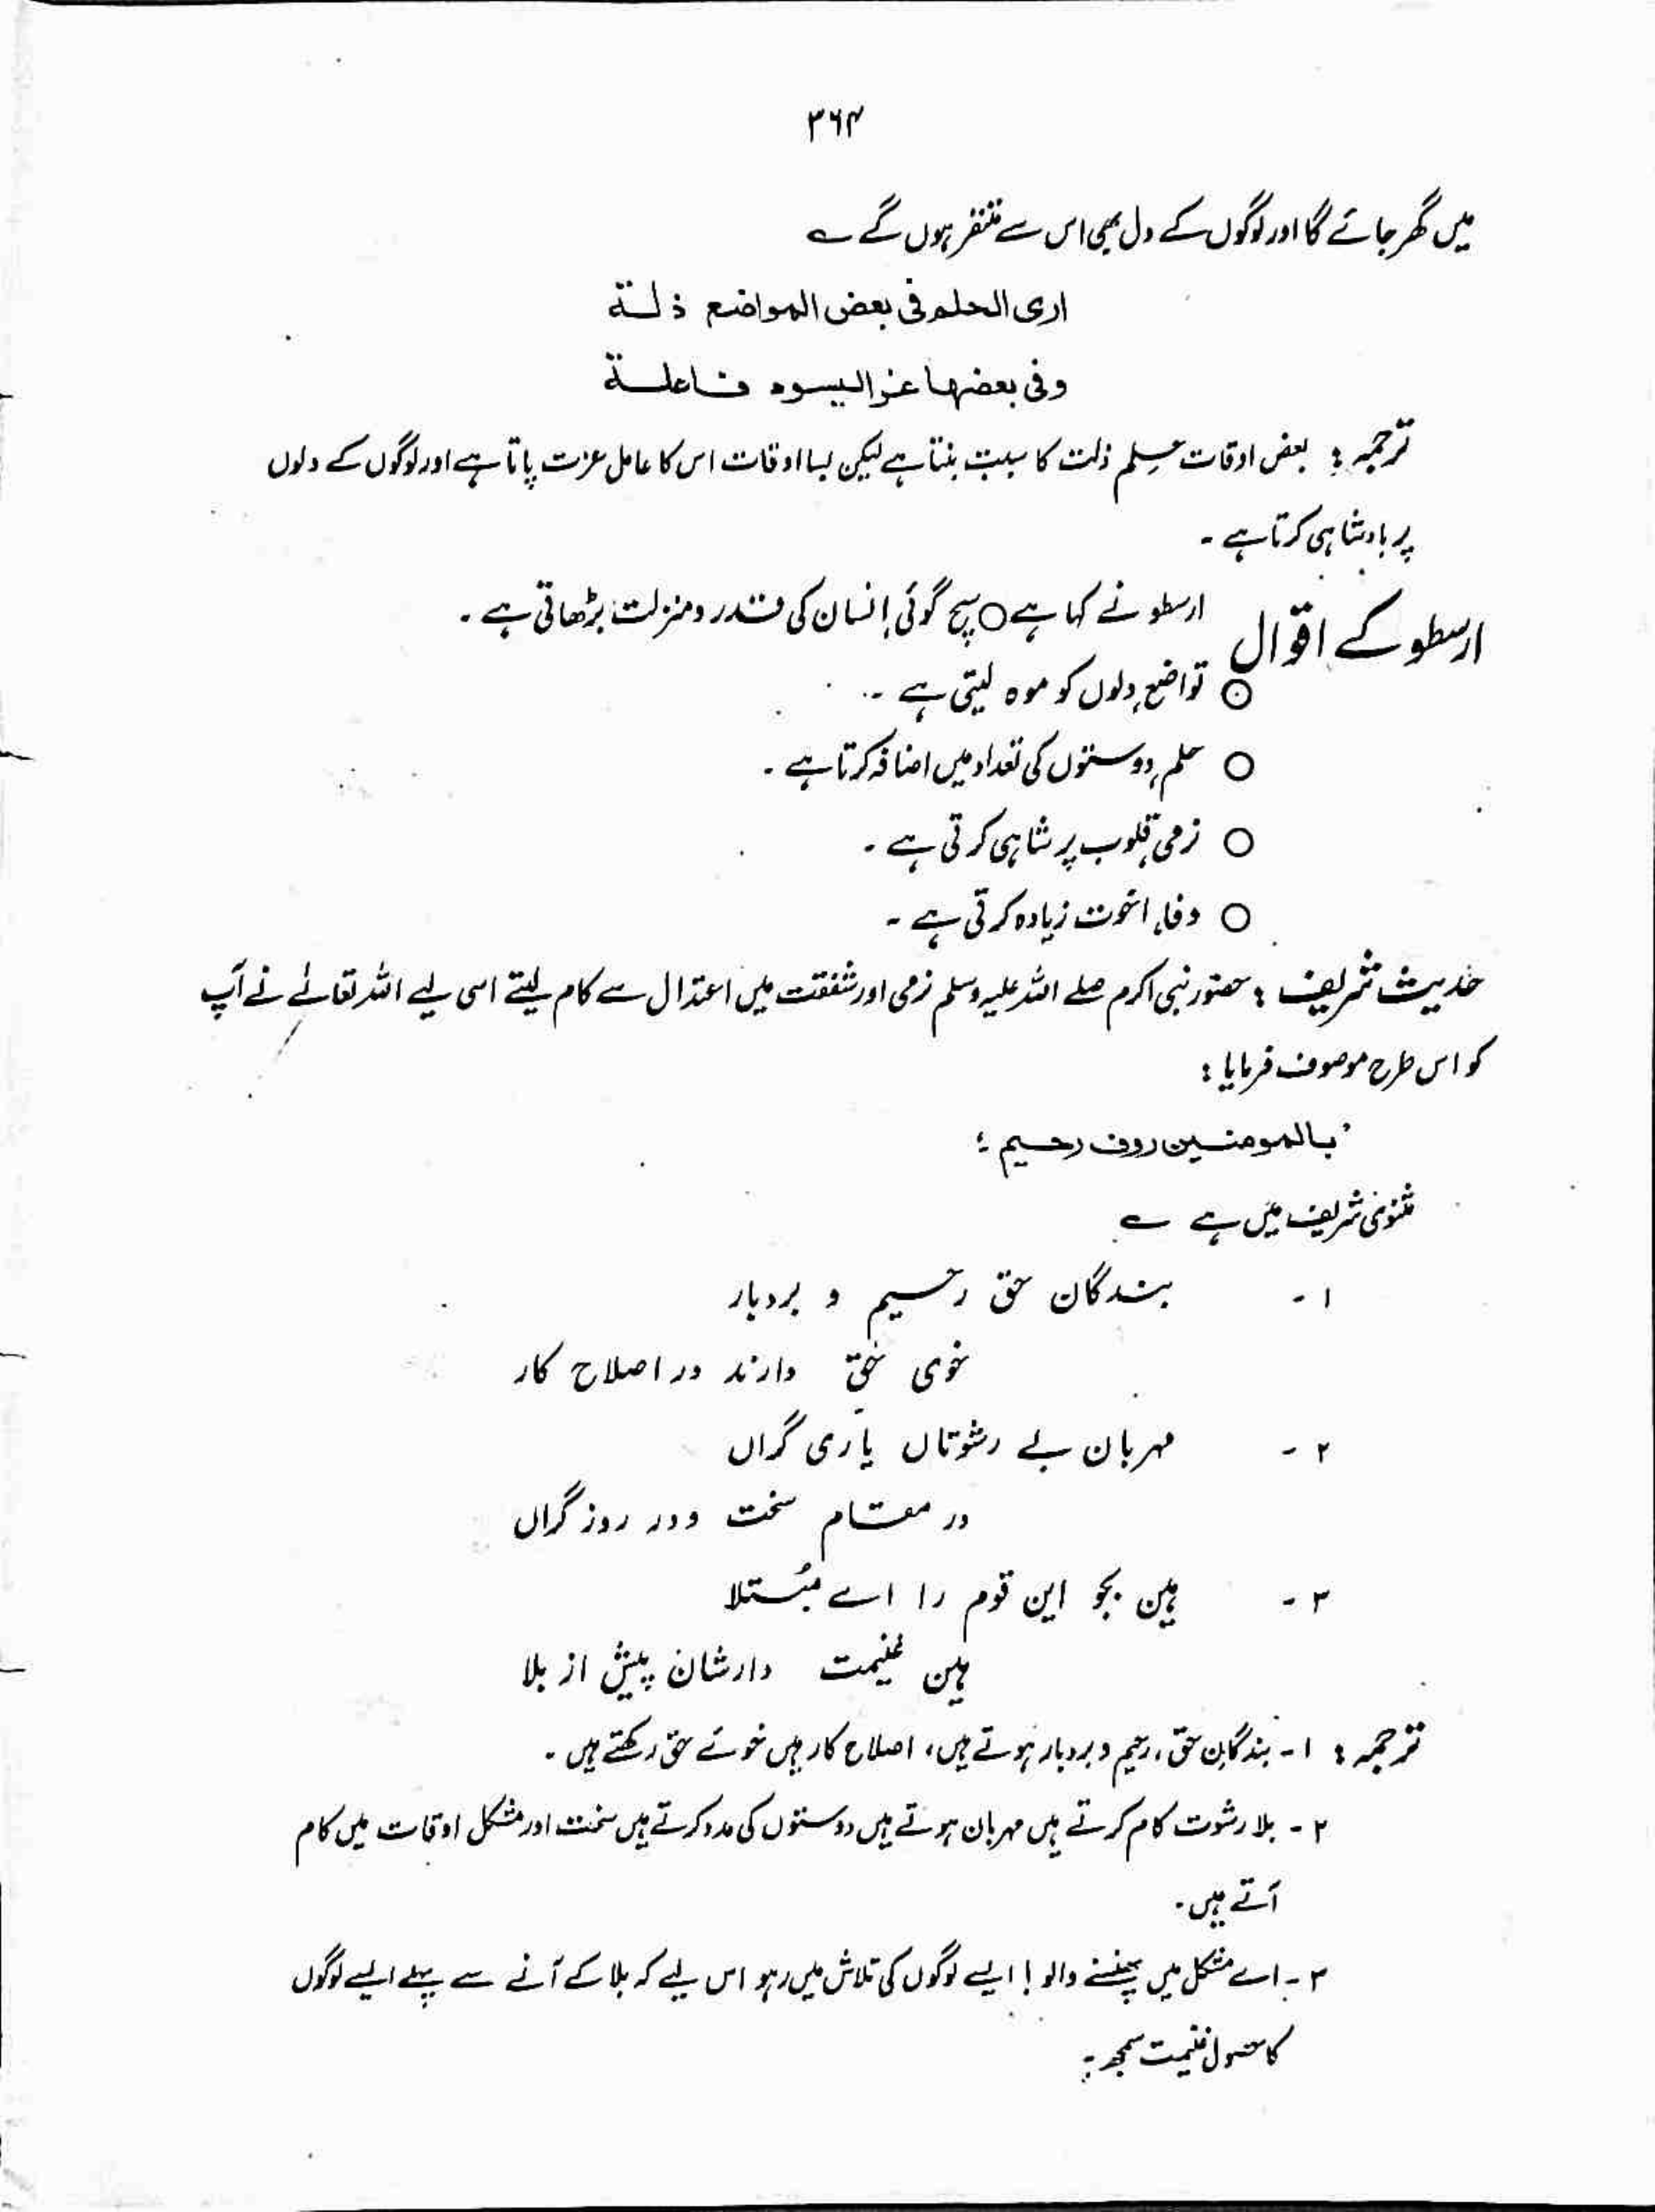 ۳۶۴
میں گھر جائے گا اور لوگوں کے دل بھی اس سے متنفر ہوں گے ؎
اری الحلم فی بعض المواضع ذلۃ
وفی بعضہا عزا یسود فاعلہ
ترجمہ : بعض اوقات حلم ذلت کا سبب بنتا ہے لیکن بسا اوقات اس کا عامل عزت پاتا ہے اور لوگوں کے دلوں
پر بادشاہی کرتا ہے ۔
ارسطو کے اقوال ارسطو نے کہا ہے ○ سچ گوئی انسان کی قدر و منزلت بڑھاتی ہے ۔
○ تواضع، دلوں کو موہ لیتی ہے ۔
○ حلم، دوستوں کی تعداد میں اضافہ کرتا ہے ۔
○ نرمی، قلوب پر شاہی کرتی ہے ۔
○ وفا، اخوت زیادہ کرتی ہے ۔
حدیث شریف : حضور نبی اکرم صلے اللہ علیہ وسلم نرمی اور شفقت میں اعتدال سے کام لیتے اسی لیے اللہ تعالےٰ نے آپ
کو اس طرح موصوف فرمایا :
بالمومنین روف رحیم ؛
مثنوی شریف میں ہے ؎
۱ - بندگان حق رحیم و بردبار
خوی حق دارند در اصلاح کار
۲ - مہربان بے رشوتاں یاری گراں
در مقام سخت و در روز گراں
۳ - ہین بجو این قوم را اے مبتلا
ہین غنیمت دارشان پیش از بلا
ترجمہ : ۱ - بندگانِ حق، رحیم و بردبار ہوتے ہیں، اصلاح کار میں خوئے حق رکھتے ہیں ۔
۲ - بلا رشوت کام کرتے ہیں مہربان ہوتے ہیں دوستوں کی مدد کرتے ہیں سخت اور مشکل اوقات میں کام
آتے ہیں ۔
۳ - اے مشکل میں پھنسنے والو ! ایسے لوگوں کی تلاش میں رہو اس لیے کہ بلا کے آنے سے پہلے ایسے لوگوں
کا حصول غنیمت سمجھ ؛